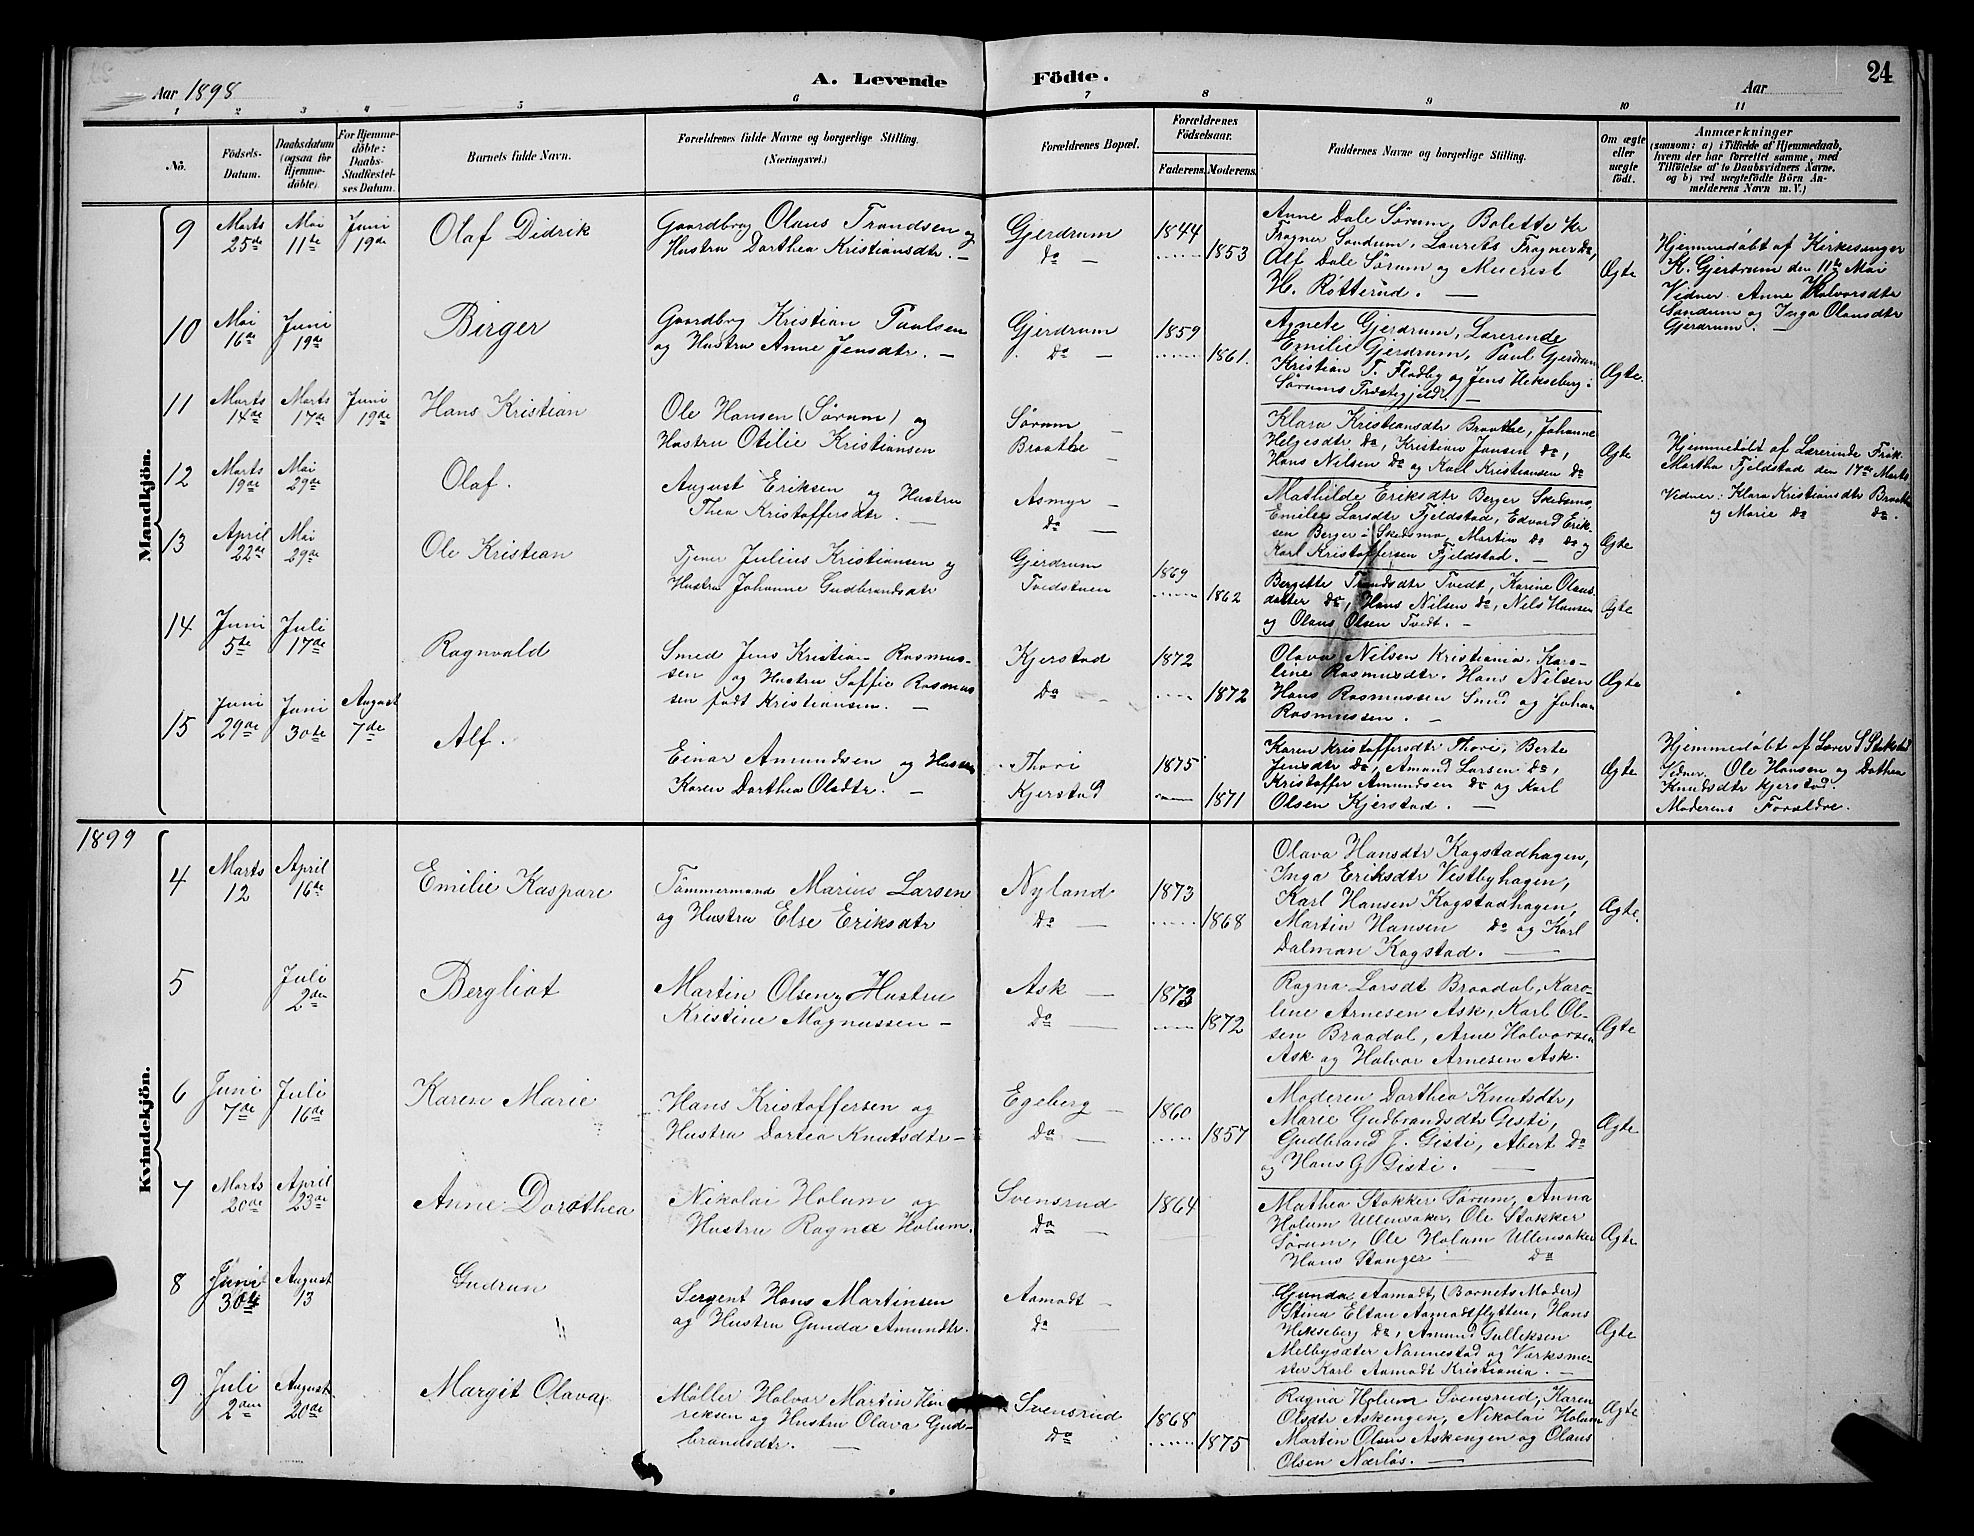 Aar 1898
A. Levende Födte.
Aar
24
1 2 3 4 5 6 7 8 9 10 11
No.
Födsels-Datum.
Daabsdatum (ogsaa for Hjemmedöbte).
For Hjemmedöbte: Daabs-Stadfæstelses Datum.
Barnets fulde Navn.
Forældrenes fulde Navne og borgerlige Stilling. (Næringsvei.)
Forældrenes Bopæl.
Forældrenes Födselsaar.
Faderens. Moderens.
Faddernes Navne og borgerlige Stilling.
Om ægte eller uægte födt.
Anmærkninger
(saasom: a) i Tilfælde af Hjemmedaab, hvem der har forrettet samme, med Tilföielse af to Daabsvidners Navne. og b) ved uægtefödte Börn Anmelderens Navn m. V.)
Mandkjön.
9 Marts 25de Mai 11te Juni 19de
Olaf Didrik
Gaardbrg Olaus Trondsen og
Hustru Dorthea Kristiansdtr. —
Gjerdrum
do —
1844
1853
Anne Dale Sørum, Bolette Kr
Fragner Sandum, Laurits Fragner do,
Alf Dale Sørum og
H. Røtterud. —
Ægte
Hjemmedøbt af Kirkesanger
K. Gjerdrum den 11te Mai
Vidner. Anne Halvorsdtr
Sandrum og Inga Olausdtr
Gjerdrum. —
10 Mai 16de Juni 19de
Birger
Gaardbrg Kristian Paulsen
og Hustru Anne Jensdtr. —
Gjerdrum
do —
1859
1861.
Agnete Gjerdrum, Lærerinde
Emilie Gjerdrum, Paul Gjerdrum
Kristian T. Fladby og Jens Hekseberg i
Sørums Præstegjeld. —
Ægte.
11 Marts 14de Marts 17de Juni 19de
Hans Kristian
Ole Hansen (Sørum) og
Hustru Otilie Kristiansen
Sørum —
Braathe —
Klara Kristiansdtr Braathe, Johanne
Helgesdtr do, Kristian Jansen do,
Hans Nilsen do og Karl Kristiansen do
Ægte
Hjemmedøbt af Lærerinde Frøk.
Martha Fjeldstad den 17de Marts
Vidner: Klara Kristiansdtr Braathe
og Marie do do.
12 Marts 19de Mai 29de
Olaf.
August Eriksen og Hustru
Thea Kristoffersdtr. —
Asmyr
do —
Mathilde Eriksdtr Berger Skedsmo,
Emilie Larsdtr Fjeldstad, Edvard Erik-
sen Berger i Skedsmo, Martin do do og
Karl Kristoffersen Fjeldstad. —
Ægte
13 April 22de Mai 29de
Ole Kristian
Tjener Julius Kristiansen og
Hustru Johanne Gudbrandsdtr
Gjerdrum
Tvedstuen
1869
1862
Bergette Trondsdtr Tvedt, Karine Olaus-
datter do, Hans Nilsen do, Nils Hansen
og Olaus Olsen Tvedt. —
Ægte
14 Juni 5te Juli 17de
Ragnvald
Smed Jens Kristian Rasmus-
sen og Hustru Soffie Rasmus-
sen født Kristiansen. —
Kjerstad
do —
1872
1872
Olava Nilsen Kristiania. Karo-
line Rasmusdtr. Hans Nilsen
Hans Rasmussen Smed og Johan
Rasmussen. —
Ægte
15 Juni 29de Juni 30te August 7de
Alf.
Einar Amundsen og Hustru
Karen Dorthea Olsdtr. —
Thori
Kjerstad
1875
1871
Karen Kristoffersdtr Thori, Berte
Jensdtr do, Amund Larsen do,
Kristoffer Amundsen do og Karl
Olsen Kjerstad. —
Ægte
Hjemmedøbt af Lærer S Stokstad
Vidner. Ole Hansen og Dathea
Knudsdtr Kjerstad.
Moderens Forældre.
1899
Kvindekjön.
4 Marts 12 April 16de
Emilie Kaspare
Tømmermand Marius Larsen
og Hustru Else Eriksdtr
Nyland
do —
1873
1868
Olava Hansdtr Kogstadhagen,
Inga Eriksdtr Vestbyhagen,
Karl Hansen Kogstadhagen,
Martin Hansen do og Karl
Dalman Kogstad. —
Ægte.
5 Juli 2den
Bergliot
Martin Olsen, Hustru
Kristine Magnussen —
Ask —
do —
1873
1872
Ragna Larsdt Braadal, Karo-
line Arnesen Ask, Karl Ol-
sen Braadal, Arne Halvorsen
Ask og Halvor Arnesen Ask.
Ægte
6 Juni 7de Juli 16de
Karen Marie
Hans Kristoffersen og
Hustru Dortea Knutsdtr —
Egeberg —
do —
1860
1857
Moderen Dorthea Knutsdtr,
Marie Gudbrandsdtr Gisti,
Gudbrand J. Gisti, Abert do
og Hans G Gisti. —
Ægte
7 Marts 20de April 23de
Anne Dorothea
Nikolai Holum og
Hustru Ragna Holum.
Svensrud
do —
1864
Mathea Stokker Sørum, Anna
Holum Ullensaker, Ole Stokker
Sørum, Ole Holum Ullensaker
Hans Stanger do
Ægte
8 Juni 30te August 13
Gudrun
"
Sergent Hans Martinsen
og Hustru Gunda Amundtr.
Aamodt —
do —
Gunda Aamodt, (Barnets Moder)
Stina Elton Aamodtflytten, Hans
Hekseberg do, Amund Gulliksen
Melbysæter Nannestad og Værksme-
ster Karl Aamodt Kristiania. —
Ægte
9 Juli 2den August 20de
Margit Olava
Møller Halvor Martin Hen-
riksen og Hustru Olava Gud-
brandsdtr. —
Svensrud
do
1868
1875
Ragna Holum Svensrud, Karen
Olsdtr Askengen, Nikolai Holum
Martin Olsen Askengen og Olaus
Olsen Nærløs. —
Ægte